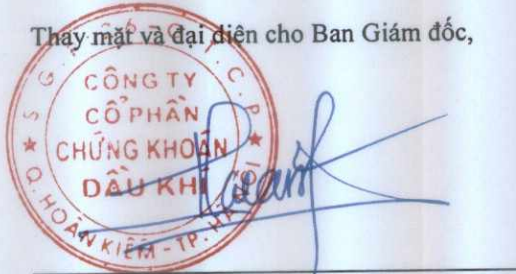 Thay mặt và đại diện cho Ban Giám đốc,
CÔNG TY
CỔ PHẦN
CHỨNG KHOÁN
DẦU KHÍ
Q. HOÀN KIẾM - TP.